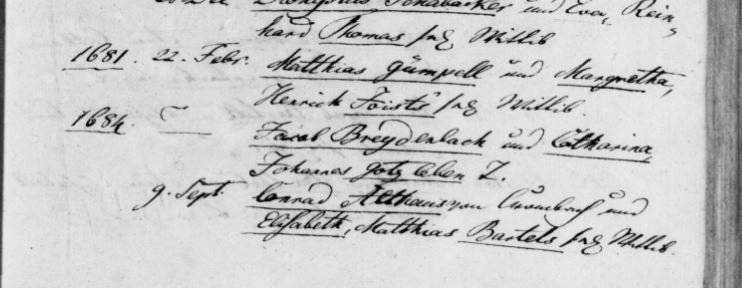 Dionysius Schabacker und Eva, Rein-
hard Thomas Wittib
1681. 22. Febr. Matthias Gümpell und Margretha,
Henrich Wittib.
1684. Jacob Breydenbach und Catharina,
Johannes leben T.
9. Sept. Conrad Althaus von und
Elisabeth, Matthias Bartels Wittib.